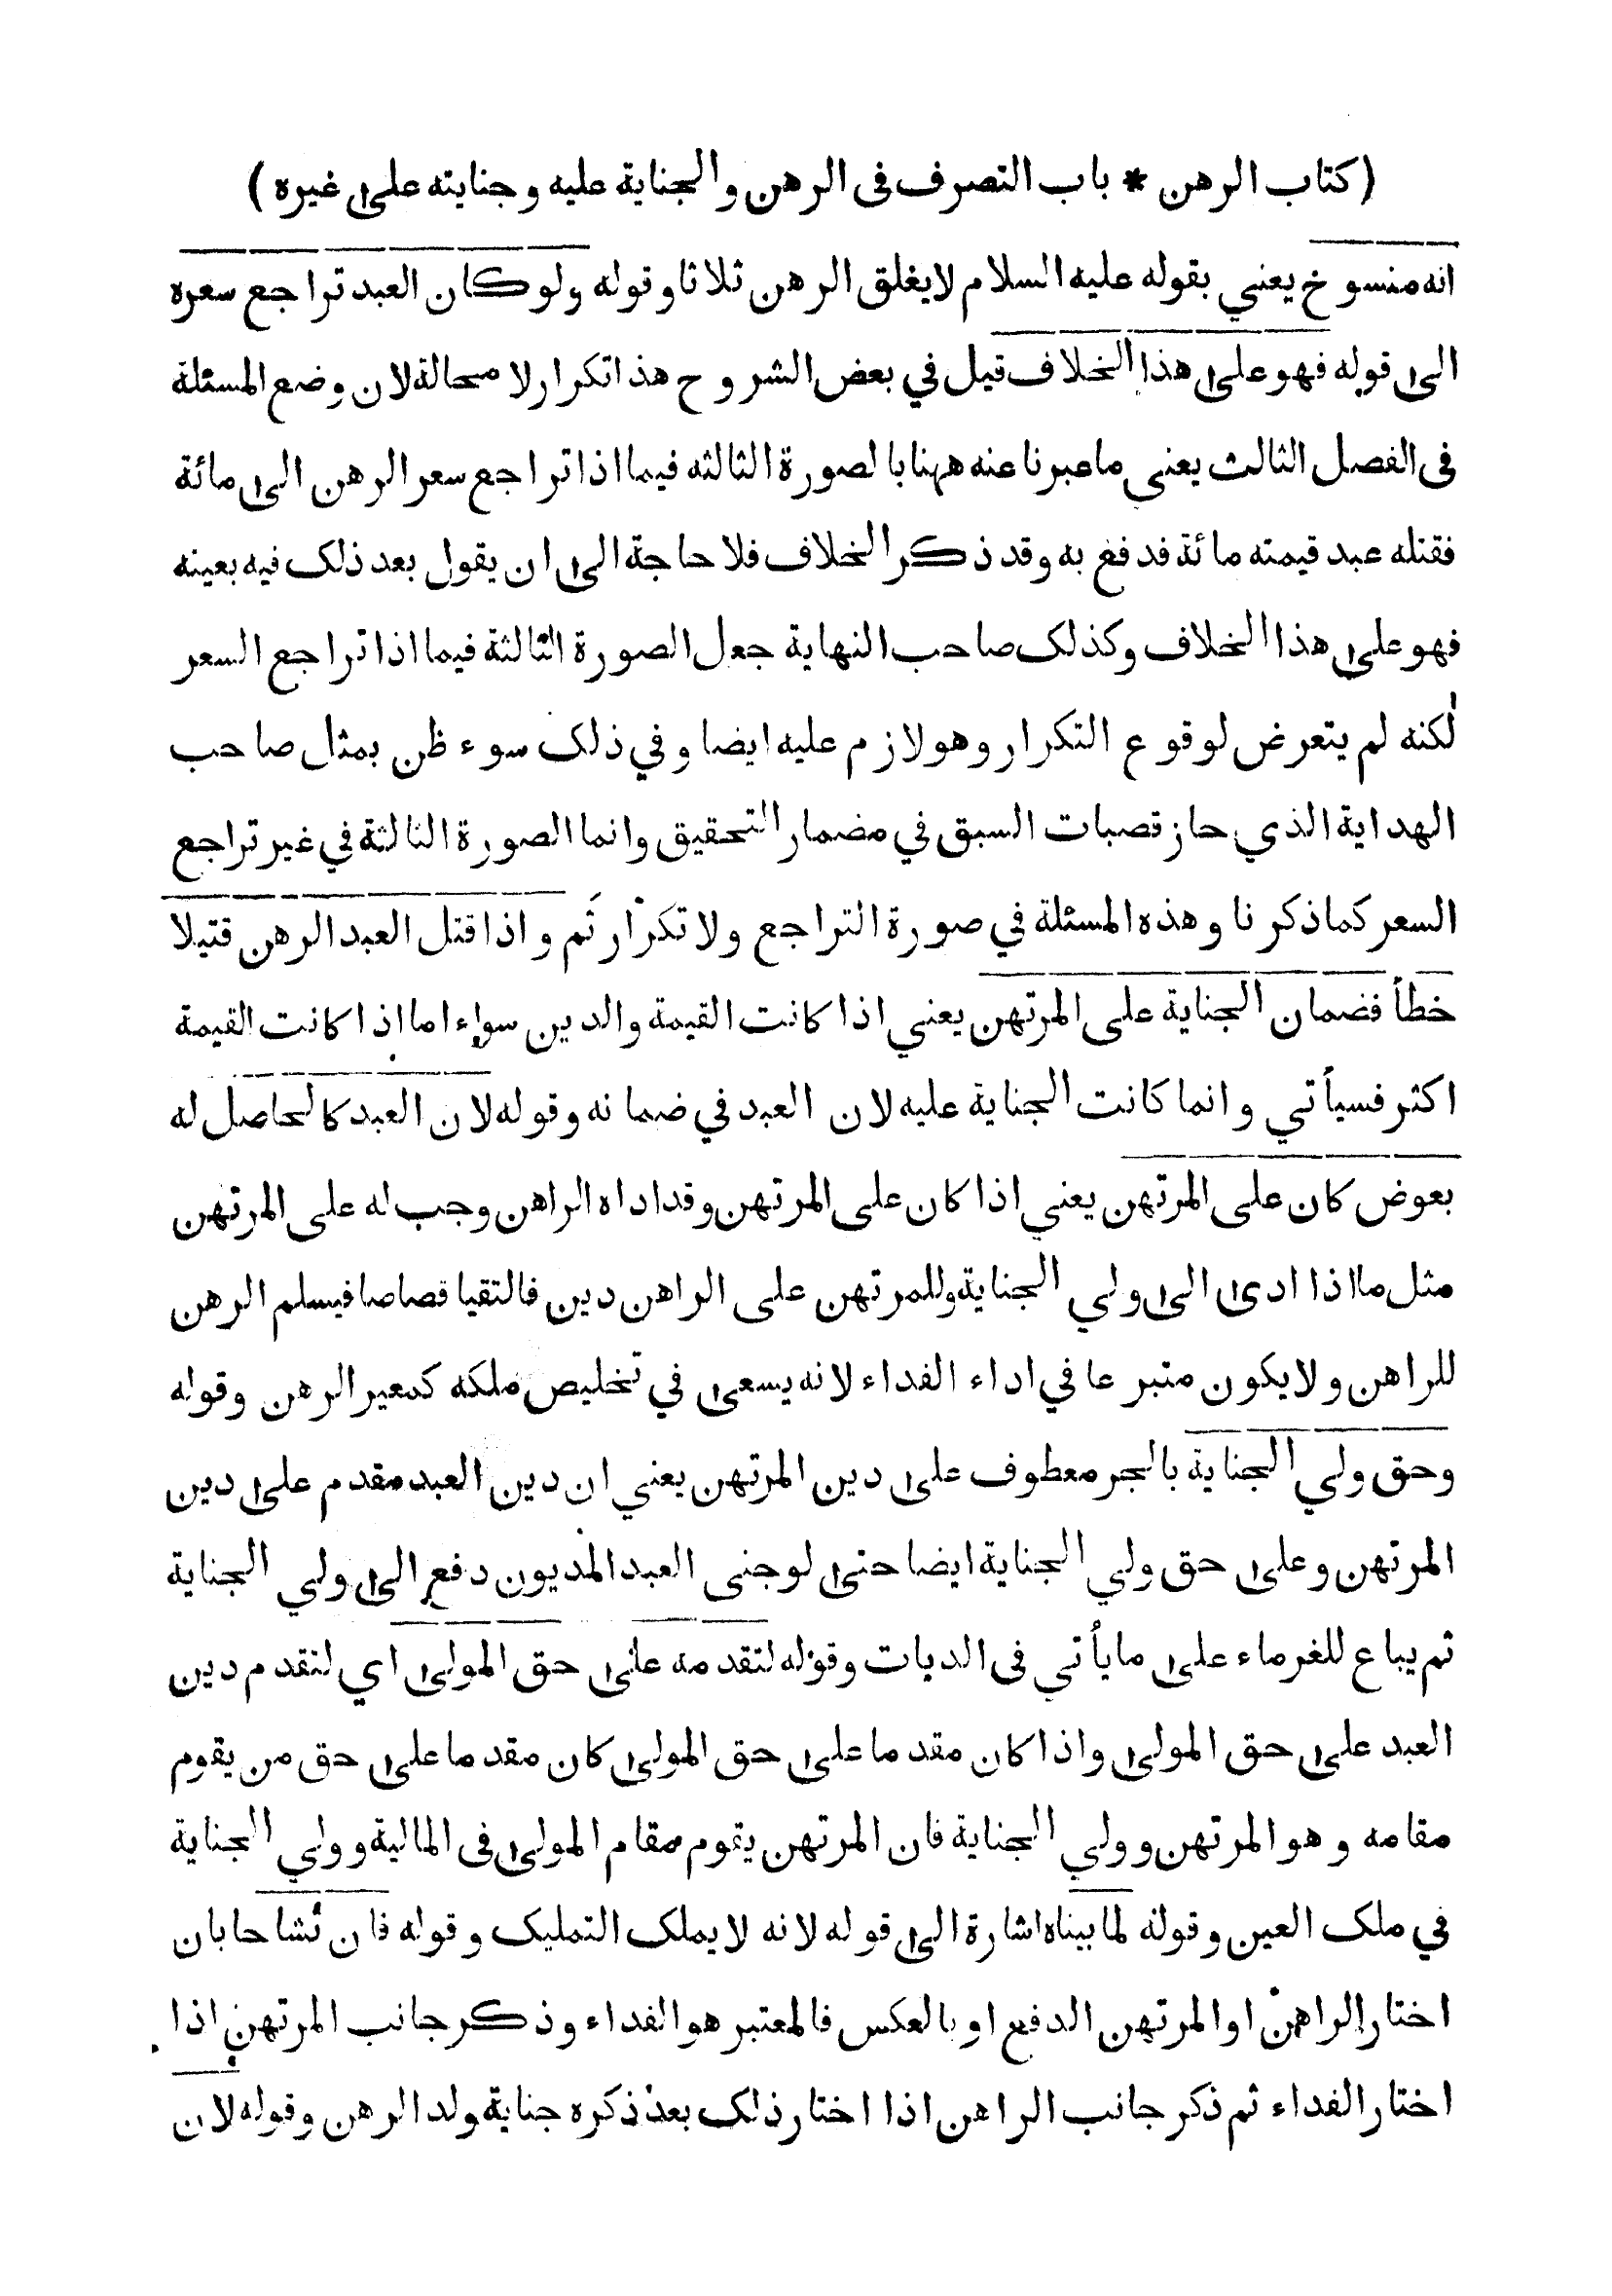 ( كتاب الرهن * باب التصرف فى الرهن والجناية عليه وجنايته على غيره )
انه منسوخ يعني بقوله عليه السلام لايغلق الرهن ثلاثا وقوله ولوكان العبد تراجع سعره
الى قوله فهو على هذا الخلاف قيل في بعض الشروح هذا تكرار لا محالة لان وضع المسئلة
فى الفصل الثالث يعني ماعبرنا عنه ههنا بالصورة الثالثه فيما اذا تراجع سعر الرهن الى مائة
فقتله عبد قيمته مائة فدفع به وقد ذكر الخلاف فلا حاجة الى ان يقول بعد ذلك فيه بعينه
فهو على هذا الخلاف وكذلك صاحب النهاية جعل الصورة الثالثة فيما اذا تراجع السعر
لكنه لم يتعرض لوقوع التكرار وهو لازم عليه ايضا وفي ذلك سوء ظن بمثل صاحب
الهداية الذي حاز قصبات السبق في مضمار التحقيق وانما الصورة الثالثة في غير تراجع
السعر كما ذكرنا وهذه المسئلة في صورة التراجع ولا تكرار ثَم واذا قتل العبد الرهن قتيلا
خطأ فضمان الجناية على المرتهن يعني اذا كانت القيمة والدين سواء اما اذا كانت القيمة
اكثر فسيأتي وانما كانت الجناية عليه لان العبد في ضمانه وقوله لان العبد كالحاصل له
بعوض كان على المرتهن يعني اذا كان على المرتهن وقد اداه الراهن وجب له على المرتهن
مثل ما اذا ادى الى ولي الجناية وللمرتهن على الراهن دين فالتقيا قصاصا فيسلم الرهن
للراهن ولايكون متبرعا في اداء الفداء لانه يسعى في تخليص ملكه كمعير الرهن وقوله
وحق ولي الجناية بالجر معطوف على دين المرتهن يعني ان دين العبد مقدم على دين
المرتهن وعلى حق ولي الجناية ايضا حتى لوجنى العبد المديون دفع الى ولي الجناية
ثم يباع للغرماء على ما يأتي فى الديات وقوله لتقدمه على حق المولى اي لتقدم دين
العبد على حق المولى واذا كان مقدما على حق المولى كان مقدما على حق من يقوم
مقامه وهو المرتهن وولي الجناية فان المرتهن يقوم مقام المولى فى المالية وولي الجناية
في ملك العين وقوله لما بيناه اشارة الى قوله لانه لايملك التمليك وقوله فان تشاحا بان
اختار الراهن او المرتهن الدفع او بالعكس فالمعتبر هو الفداء وذكر جانب المرتهن اذا
اختار الفداء ثم ذكر جانب الراهن اذا اختار ذلك بعد ذكره جناية ولد الرهن وقوله لان